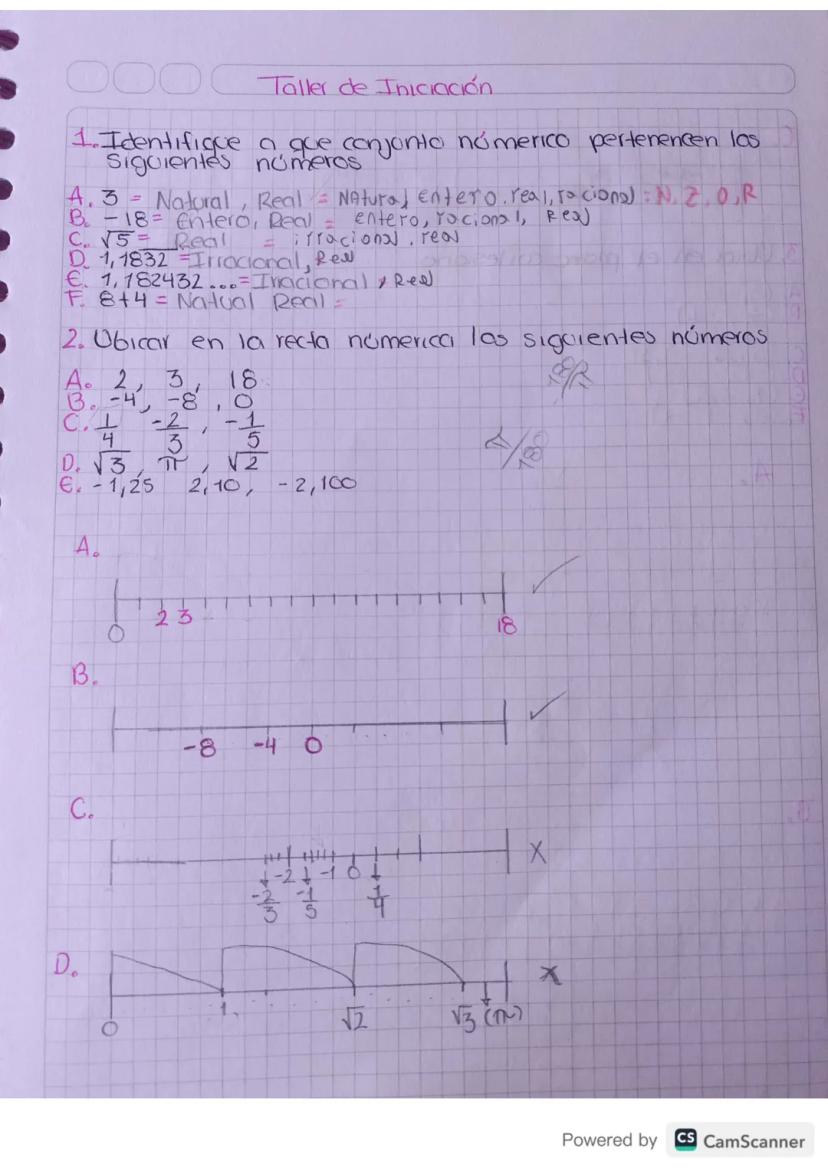 Taller de Iniciación
1. Identifique a que conjunto númerico pertenencen los
siguientes números
A. 3 = Natural, Real = NAtural entero, real, racional: N, Z, Q, R
B. -18 = Entero, Real = entero, racional, Real
C. √5 = Real = irracional, real
D. 1,1832 = Irracional, Real
E. 1,182432... = Irracional, Real
F. 8+4 = Natual Real =
2. Ubicar en la recta númerica los siguientes números
A. 2, 3, 18
B. -4, -8, 0
C. 1/4 -2/3, -1/5
D. √3, π, √2
E. -1,25 2,10, -2,100
A.
0 2 3 18
B.
-8 -4 0
C.
-2 -1 0 X
-2/3 -1/5 1/4
D.
X
0 1 √2 √3 (π)
Powered by CS CamScanner